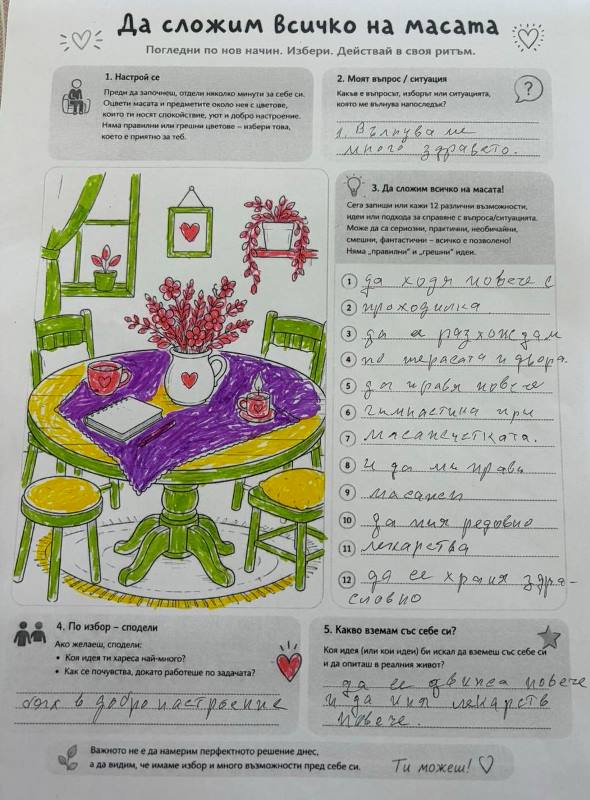 Да сложим всичко на масата
Погледни по нов начин. Избери. Действай в своя ритъм.
1. Настрой се
Преди да започнеш, отдели няколко минути за себе си.
Оцвети масата и предметите около нея с цветове,
които ти носят спокойствие, уют и добро настроение.
Няма правилни или грешни цветове – избери това,
което е приятно за теб.
2. Моят въпрос / ситуация
Какъв е въпросът, изборът или ситуацията,
която ме вълнува напоследък?
1. Вълнува ме
много здравето.
3. Да сложим всичко на масата!
Сега запиши или кажи 12 различни възможности,
идеи или подхода за справяне с въпроса/ситуацията.
Може да са сериозни, практични, необичайни,
смешни, фантастични – всичко е позволено!
Няма „правилни" и „грешни" идеи.
1 да ходя повече с
2 проходилка
3 да а разхождам
4 по терасата и двора.
5 да правя повече
6 гимнастика при
7 масажистката.
8 и да ми прави
9 масажи
10 да пия редовно
11 лекарства
12 да се храня здра-
словно
4. По избор – сподели
Ако желаеш, сподели:
• Коя идея ти хареса най-много?
• Как се почувства, докато работеше по задачата?
бях в добро настроение
5. Какво вземам със себе си?
Коя идея (или кои идеи) би искал да вземеш със себе си
и да опиташ в реалния живот?
да се движа повече
и да пия лекарств
повече.
Важното не е да намерим перфектното решение днес,
а да видим, че имаме избор и много възможности пред себе си.
Ти можеш!